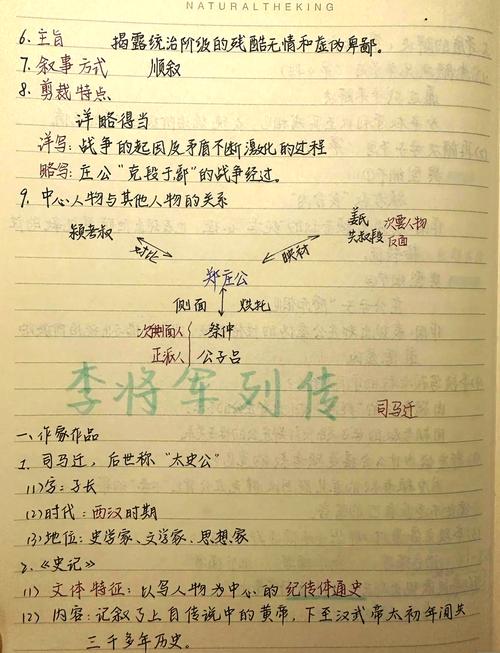 NATURALTHEKING
6. 主旨 揭露统治阶级的残酷无情和虚伪卑鄙。
7. 叙事方式 顺叙
8. 剪裁特点
详略得当
详写: 战争的起因及矛盾不断激化的过程
略写: 庄公“克段于鄢”的战争经过。
9. 中心人物与其他人物的关系
颍考叔 对比 郑庄公 映衬 姜氏 共叔段 次要人物 反面
侧面 烘托
次侧面人 祭仲
正派人 公子吕
李将军列传
司马迁
一、作家作品
1. 司马迁, 后世称“太史公”
(1)字: 子长
(2)时代: 西汉时期
(3)地位: 史学家、文学家、思想家
2. 《史记》
(1) 文体特征: 以写人物为中心的纪传体通史
(2) 内容: 记叙了上自传说中的黄帝, 下至汉武帝太初年间共
三千多年历史。